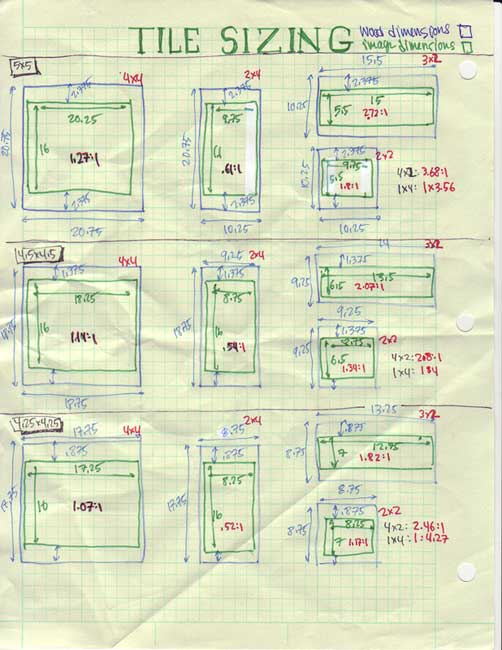 TILE SIZING
wood dimensions
image dimensions
5x5
4x4
2.375
20.25
16
1.27:1
20.75
2.375
20.75
2x4
2.375
9.75
16
.61:1
20.75
2.375
10.25
15.5
3x2
2.375
15
5.5
2.72:1
10.25
2x2
2.375
9.75
5.5
1.8:1
10.25
10.25
4x2: 3.68:1
1x4: 1x3.56
4.5x4.5
4x4
1.375
18.25
16
1.14:1
18.75
18.75
9.25
2x4
1.375
8.75
16
.54:1
18.75
14
3x2
1.375
13.5
6.5
2.07:1
9.25
9.25
2x2
1.375
8.75
6.5
1.34:1
9.25
4x2: 2.8:1
1x4: 1:4
4.25x4.25
17.75
4x4
.875
17.25
16
1.07:1
17.75
8.75
2x4
.875
8.25
16
.52:1
17.75
13.25
3x2
.875
12.75
7
1.82:1
8.75
8.75
2x2
.875
8.25
7
1.17:1
8.75
4x2: 2.46:1
1x4: 1:4.27